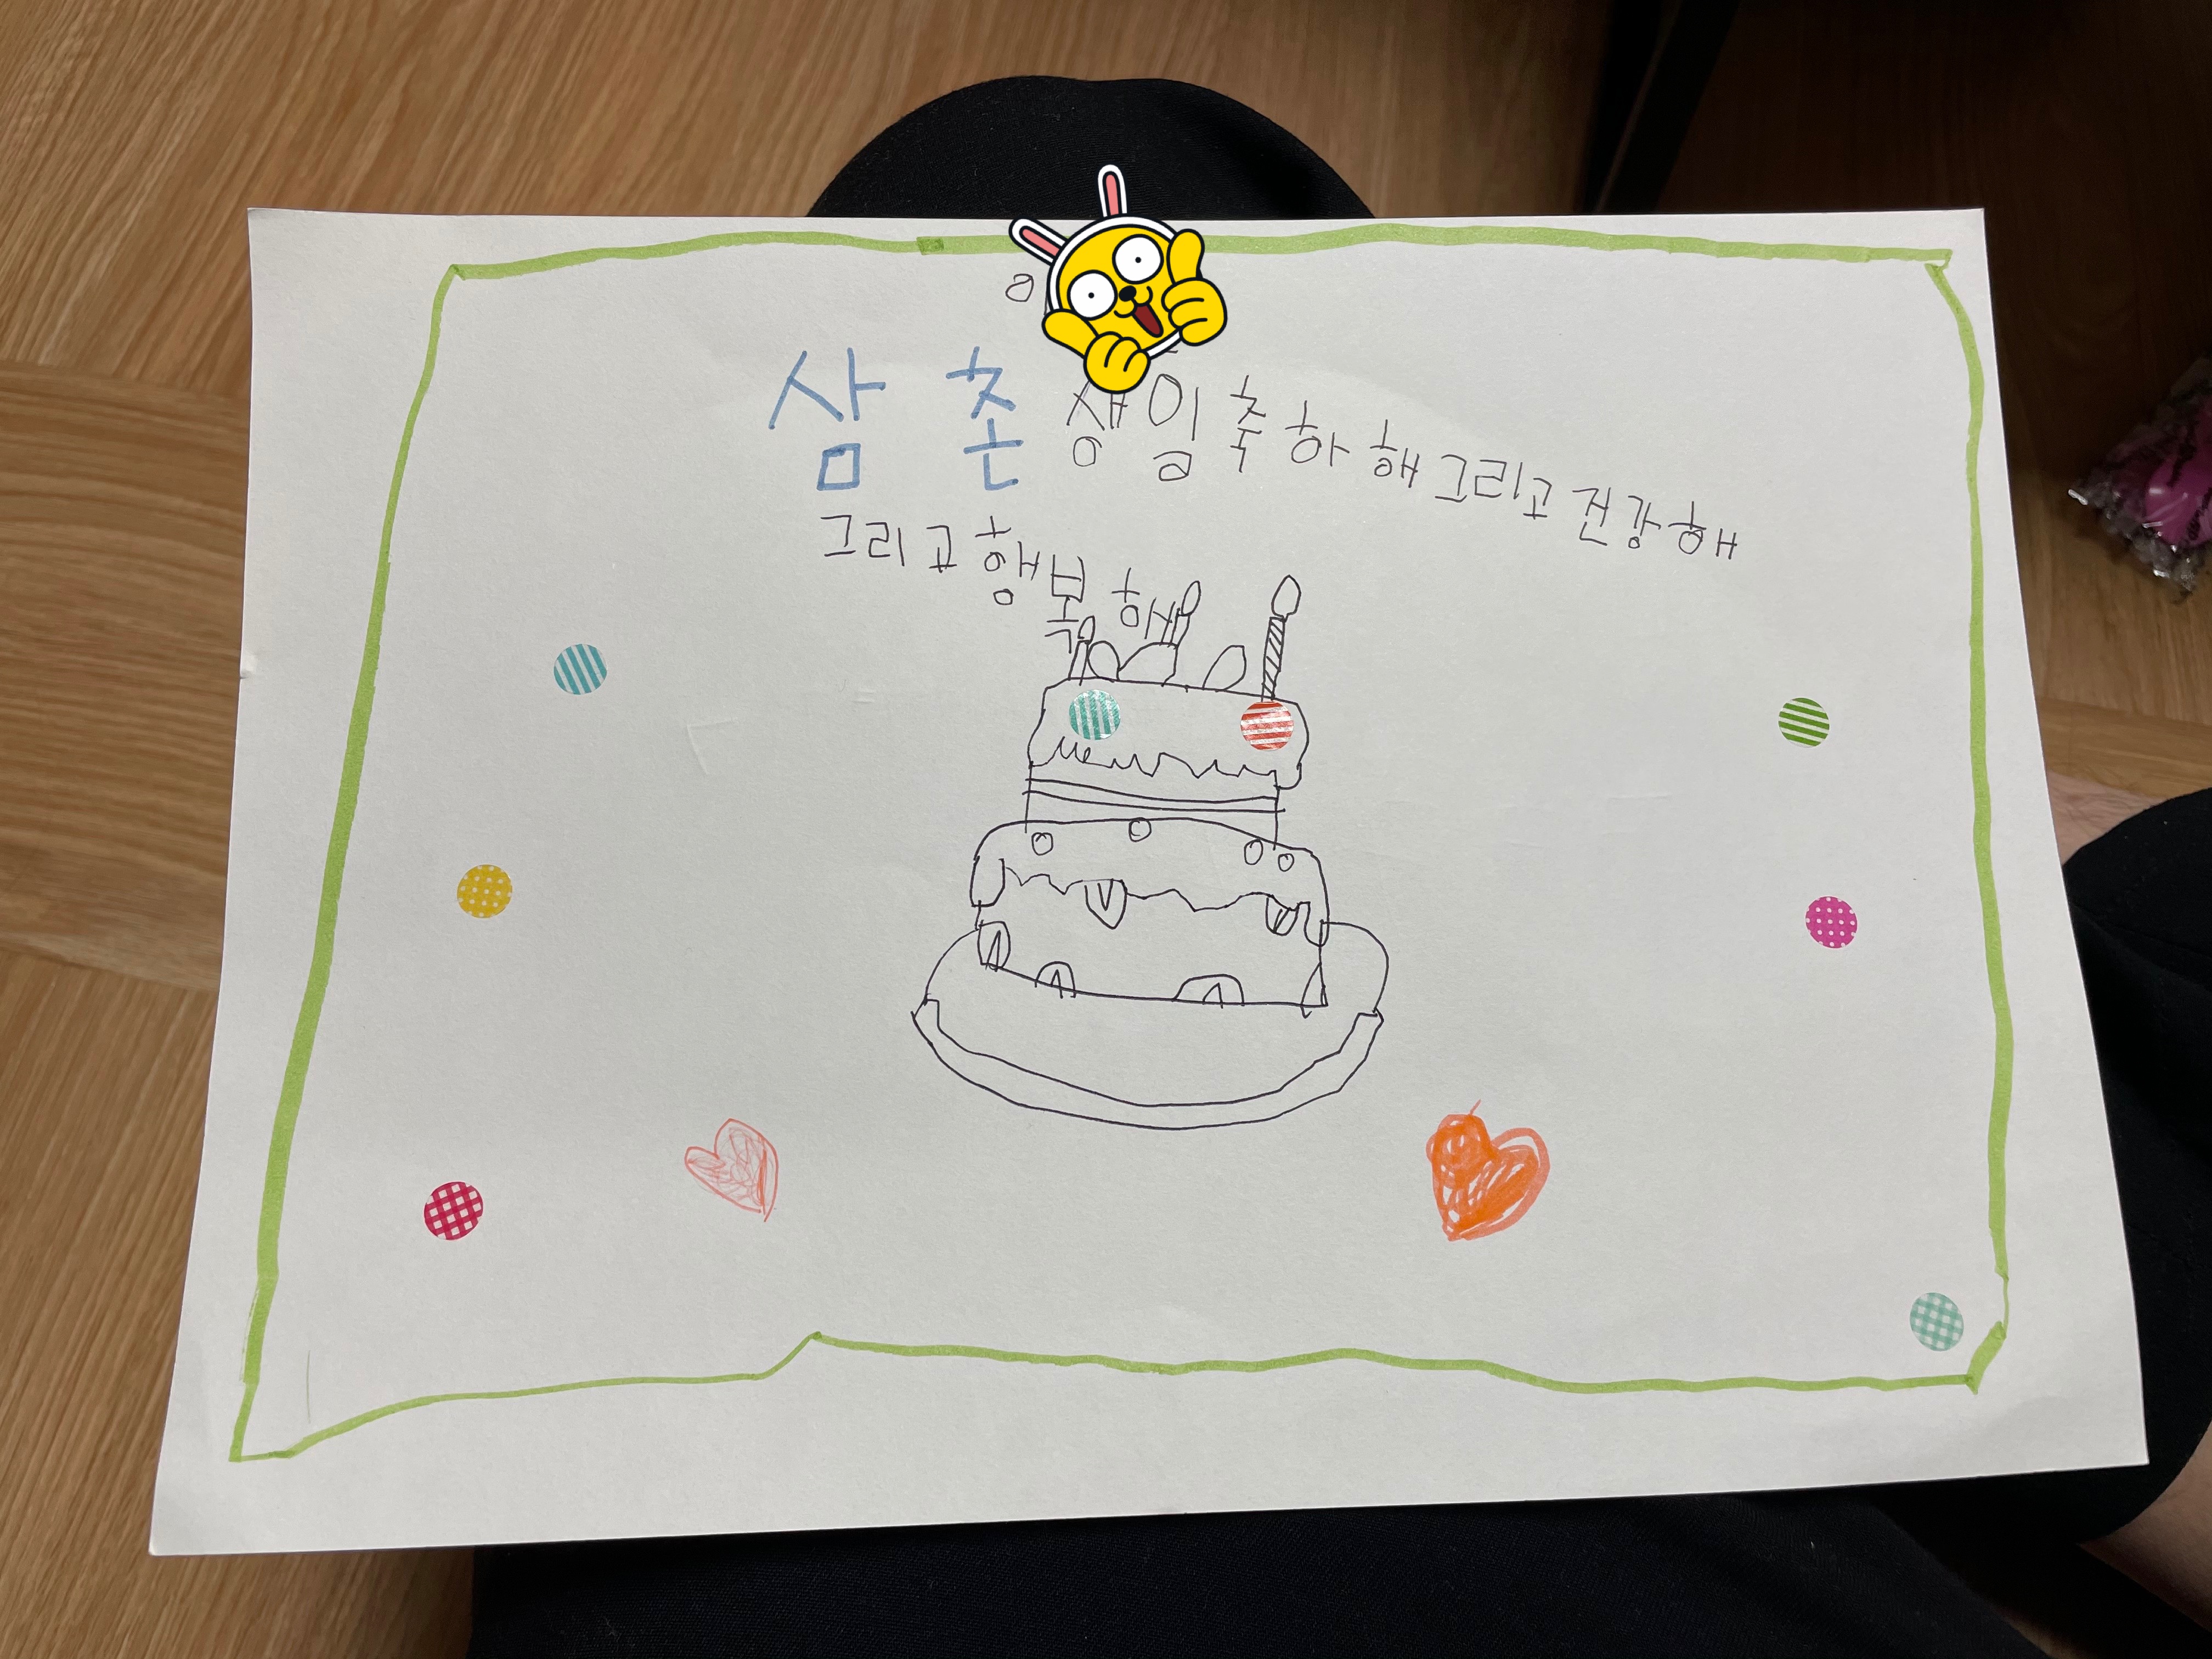 삼촌 생일 축하해 그리고 건강해
그리고 행복해